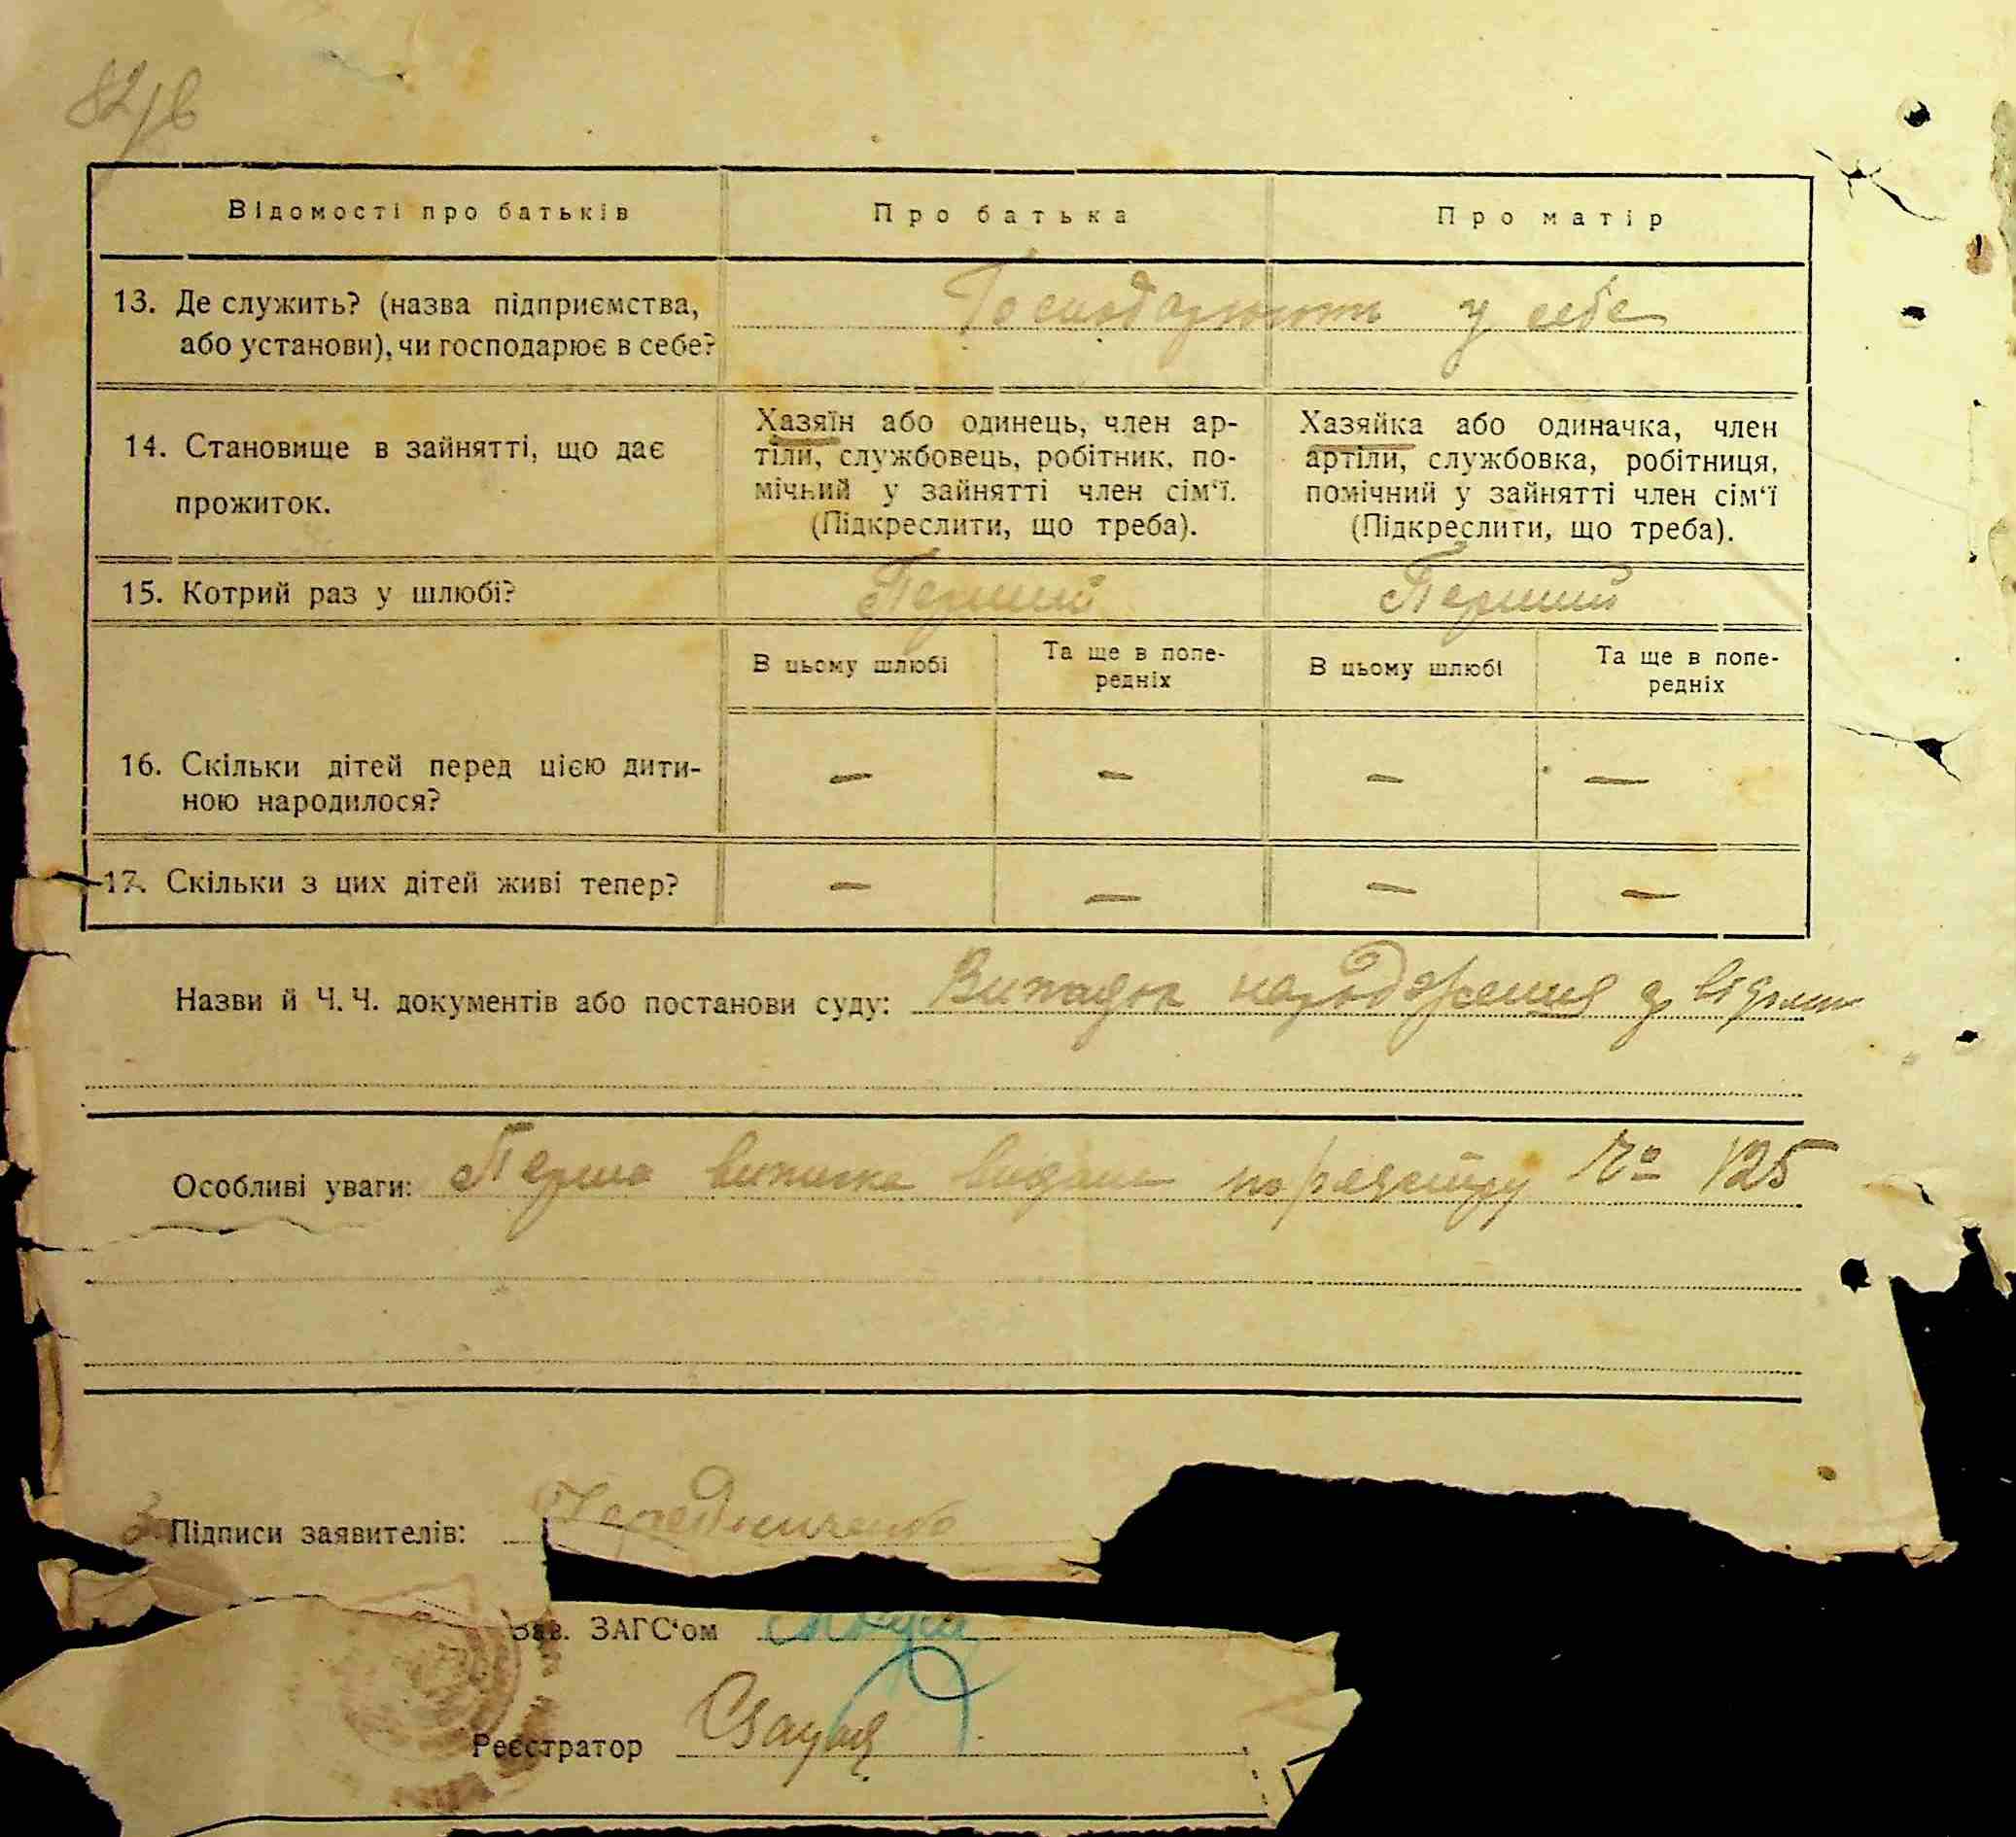 82/в
Відомості про батьків Про батька Про матір
13. Де служить? (назва підприємства, або установи), чи господарює в себе? Господарюють у себе
14. Становище в зайнятті, що дає прожиток.
Хазяїн або одинець, член ар-
тіли, службовець, робітник, по-
мічний у зайнятті член сім'ї.
(Підкреслити, що треба).
Хазяйка або одиначка, член
артіли, службовка, робітниця,
помічний у зайнятті член сім'ї
(Підкреслити, що треба).
15. Котрий раз у шлюбі? Перший Перший
В цьому шлюбі Та ще в попе-
редніх В цьому шлюбі Та ще в попе-
редніх
16. Скільки дітей перед цією дити-
ною народилося? — — — —
17. Скільки з цих дітей живі тепер? — — — —
Назви й Ч. Ч. документів або постанови суду: Випадок народження
Особливі уваги: Перша виписка видана по реєстру № 125
Підписи заявителів: Чередниченко
Зав. ЗАГС'ом
Реєстратор